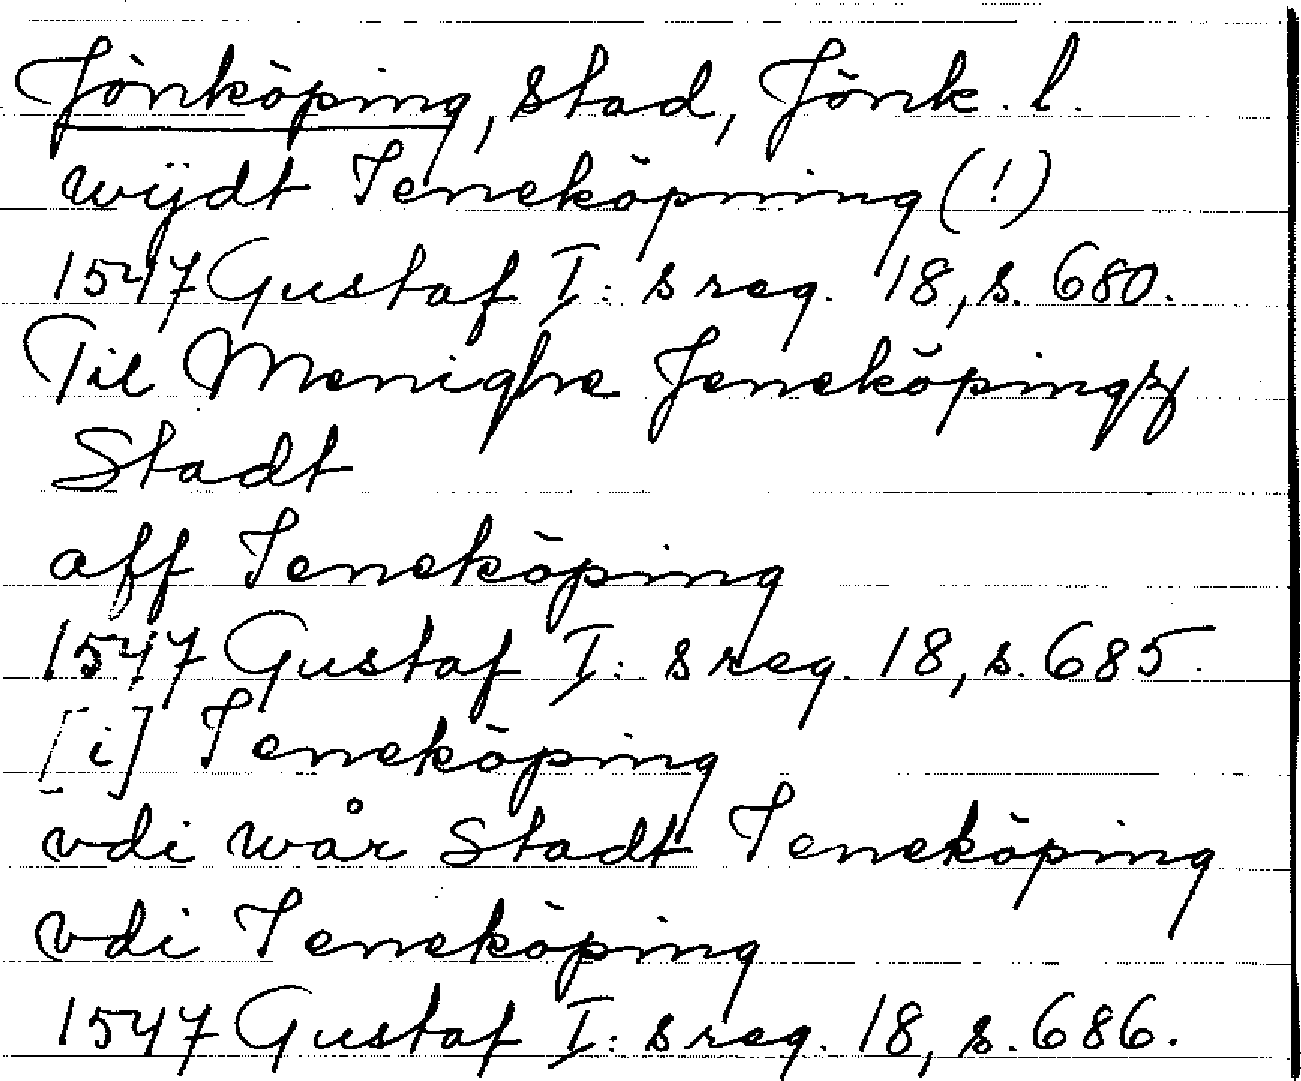 Jönköping, stad, Jönk. l.
wÿdt Ieneköpning (!)
1547 Gustaf I: s reg. 18, s. 680.
Til Menighe Jeneköpingz
Stadt
aff Ieneköping
1547 Gustaf I: s reg. 18, s. 685.
[i] Ieneköping
vdi wår Stadt Ieneköping
vdi Ieneköping
1547 Gustaf I: s reg. 18, s. 686.